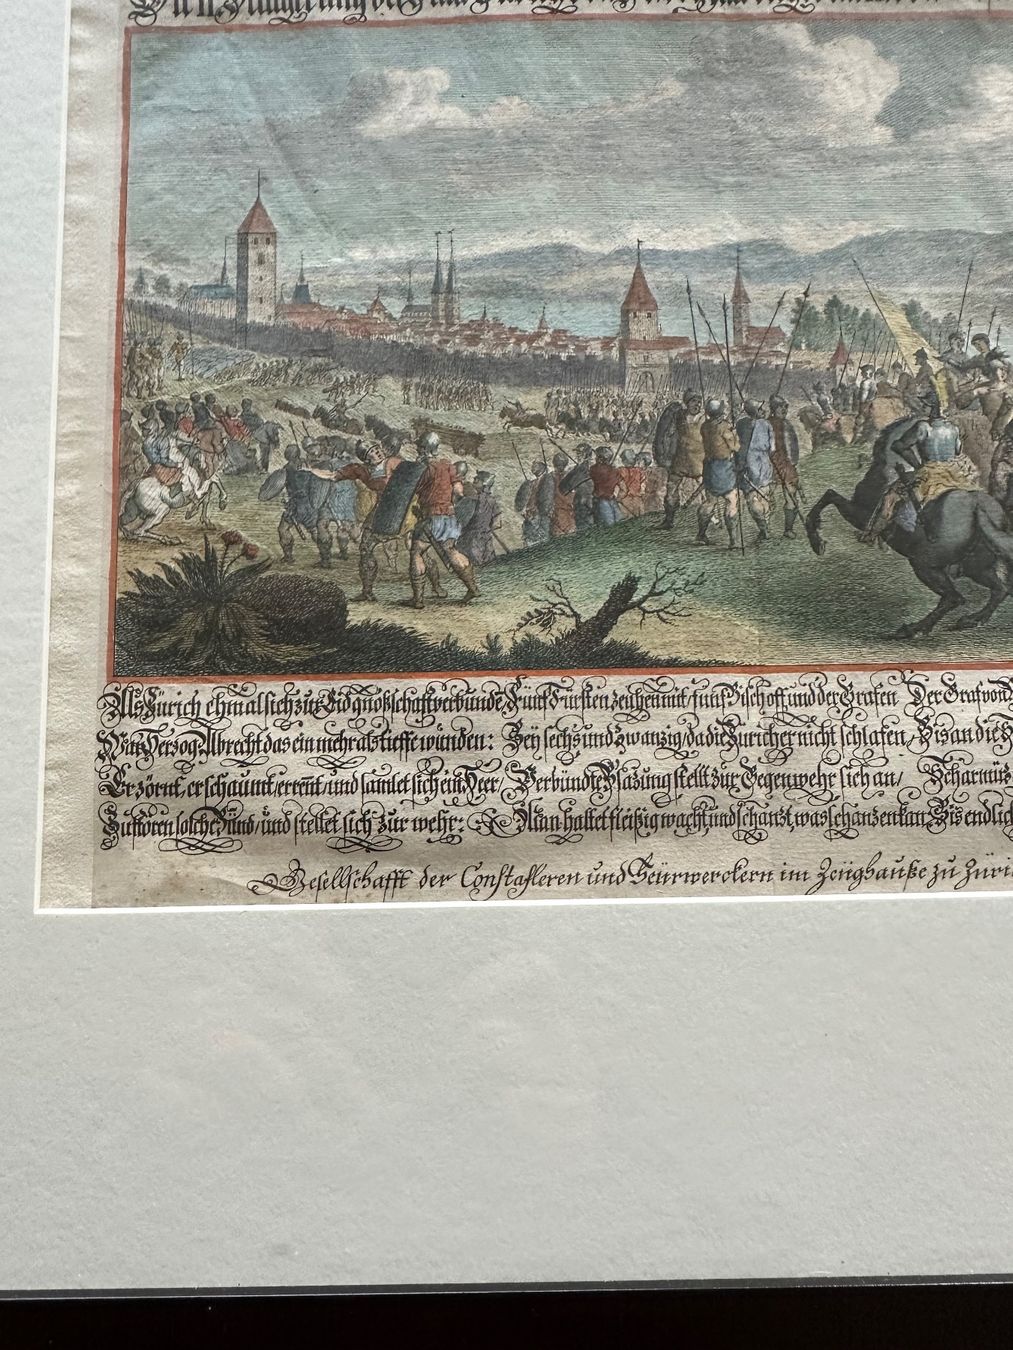 Als Zürich ehmal sich zur Eidgnoßschafft verbunde, Fünff Fürsten zeühen mit, fünff Bischoff, und der Grafen Der Graf von
War Herzog Albrecht das ein mehr als tieffe wunden: Sey sechs und zwanzig, da die Züricher nicht schlafen, Bis an die
Erzörnt, er schaumt, errent, und samlet sich ein Heer, Verbündte Bsazung stellt zur Gegenwehr sich an, Scharmüz
Zustören solche Bünd, und stellet sich zur wehr: Man haltet fleißig wacht, und schanzt, was schanzen kan. Bis endlich
Gesellschafft der Constafleren und Feürwerckern im Zeüghauße zu Züri